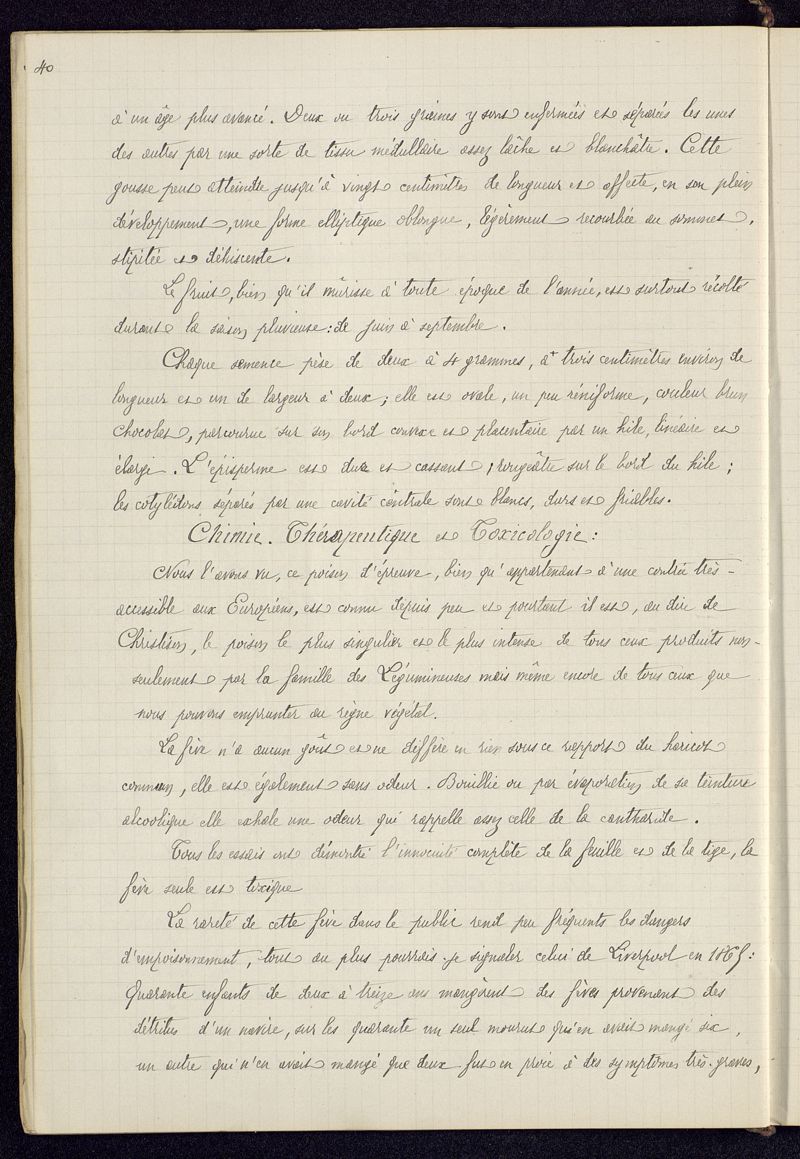 40
à un âge plus avancé. Deux ou trois graines y sont enfermées et séparées les unes
des autres par une sorte de tissu médullaire assez lâche et blanchâtre. Cette
gousse peut atteindre jusqu'à vingt centimètres de longueur et affecte, en son plein
développement, une forme elliptique oblongue, légèrement recourbée au sommet,
stipitée et déhiscente.
Le fruit, bien qu'il mûrisse à toute époque de l'année, est surtout récolté
durant la saison pluvieuse: de juin à septembre.
Chaque semence pèse de deux à 4 grammes, a trois centimètres environ de
longueur et un de largeur à deux; elle est ovale, un peu réniforme, couleur brun
chocolat, parcourue sur son bord convexe et placentaire par un hile, linéaire et
élargi. L'épisperme est dur et cassant, rougeâtre sur le bord du hile;
les cotylédons séparés par une cavité centrale sont blancs, durs et friables.
Chimie. Thérapeutique et Toxicologie:
Nous l'avons vu, ce poison d'épreuve, bien qu'appartenant à une contrée très-
accessible aux Européens, est connu depuis peu et pourtant il est, au dire de
Christison, le poison le plus singulier et le plus intense de tous ceux produits non-
seulement par la famille des Légumineuses mais même encore de tous ceux que
nous pouvons emprunter au règne végétal.
La fève n'a aucun goût et ne diffère en rien sous ce rapport du haricot
commun, elle est également sans odeur. Bouillie ou par évaporation de sa teinture
alcoolique elle exhale une odeur qui rappelle assez celle de la cantharide.
Tous les essais ont démontré l'innocuité complète de la feuille et de la tige, la
fève seule est toxique
La rareté de cette fève dans le public rend peu fréquents les dangers
d'empoisonnement, tout au plus pourrais-je signaler celui de Liverpool en 186 :
Quarante enfants de deux à treize ans mangèrent des fèves provenant des
détritus d'un navire, sur les quarante un seul mourut qu'en avait mangé six,
un autre qui n'en avait mangé que deux fut en proie à des symptômes très-graves,